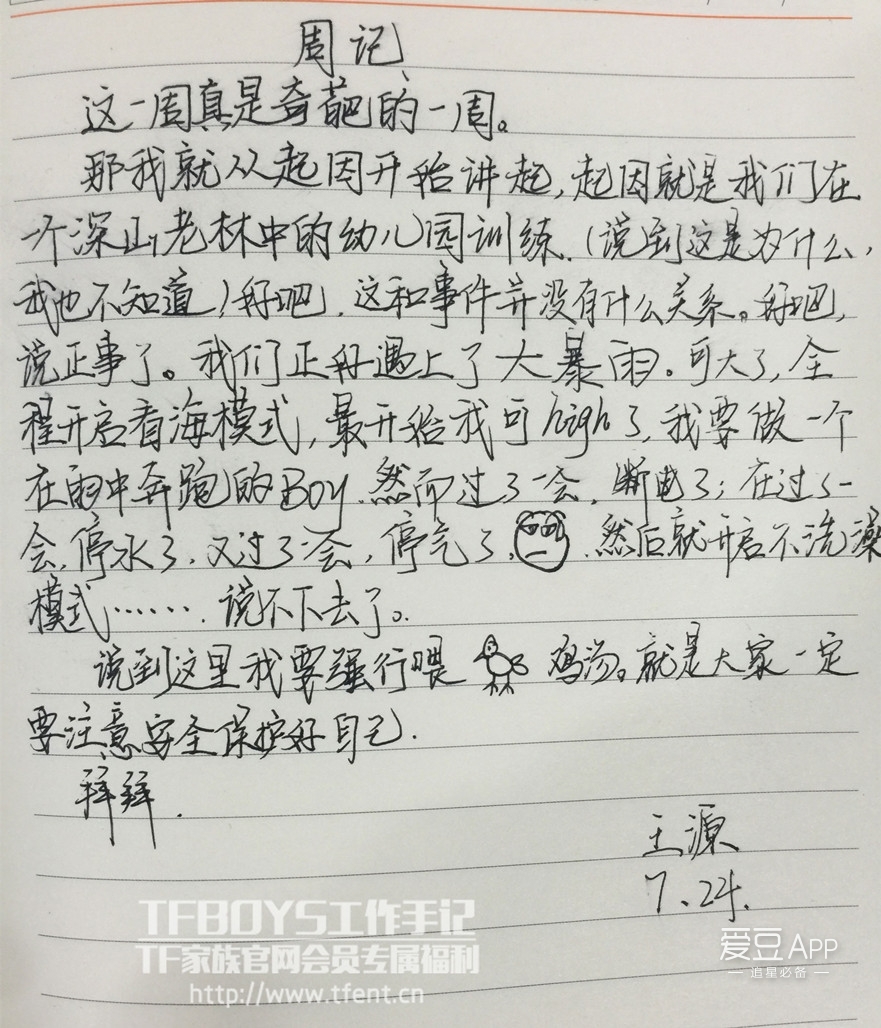 周记
这一周真是奇葩的一周。
那我就从起因开始讲起,起因就是我们在
一个深山老林中的幼儿园训练.(说到这是为什么,
我也不知道)好吧,这和事件并没有什么关系。好吧,
说正事了。我们正好遇上了大暴雨。可大了,全
程开启看海模式,最开始我可high了,我要做一个
在雨中奔跑的BOY.然而过了一会,断电了;在过了一
会,停水了,又过了一会,停气了,.然后就开启不洗澡
模式……. 说不下去了。
说到这里我要强行喂 鸡汤。就是大家一定
要注意安全保护好自己.
拜拜.
王源
7.24.
TFBOYS工作手记
TF家族官网会员专属福利
http://www.tfent.cn
爱豆APP
— 追星必备 —